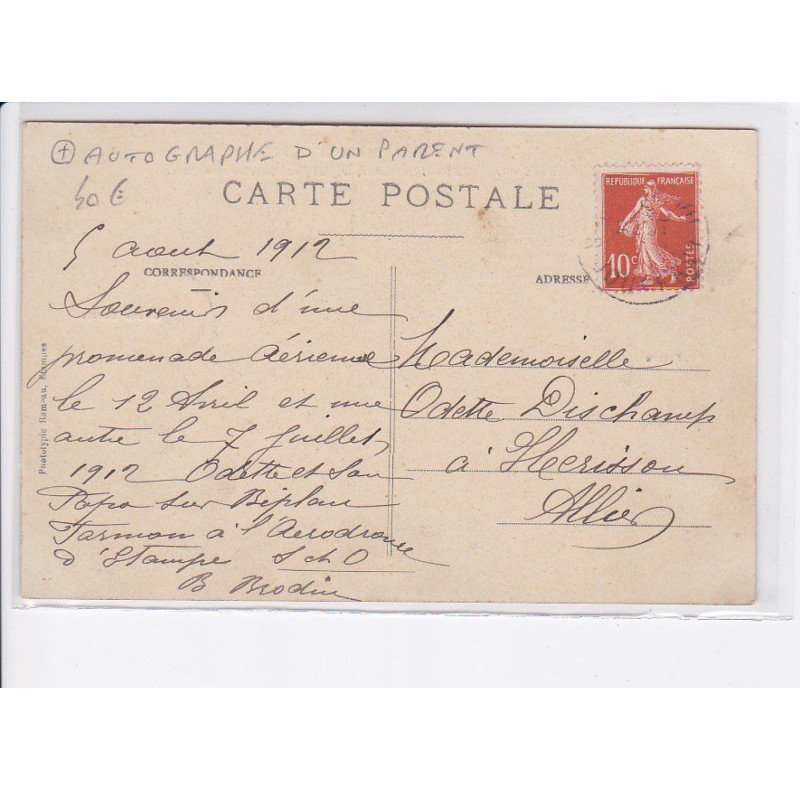 + AUTOGRAPHE D'UN PARENT
CARTE POSTALE
5 Aout 1912
CORRESPONDANCE
ADRESSE
RÉPUBLIQUE FRANÇAISE
10c
POSTES
Souvenir d'une
promenade Aérienne
le 12 Avril et une
autre le 7 Juillet
1912 Odette et Son
Papa sur Biplan
Farman à l'Aérodrome
d'Etampe S et O
B Brodin
Mademoiselle
Odette Dischamp
à Herisson
Allier
Phototypie Rameau, Etampes